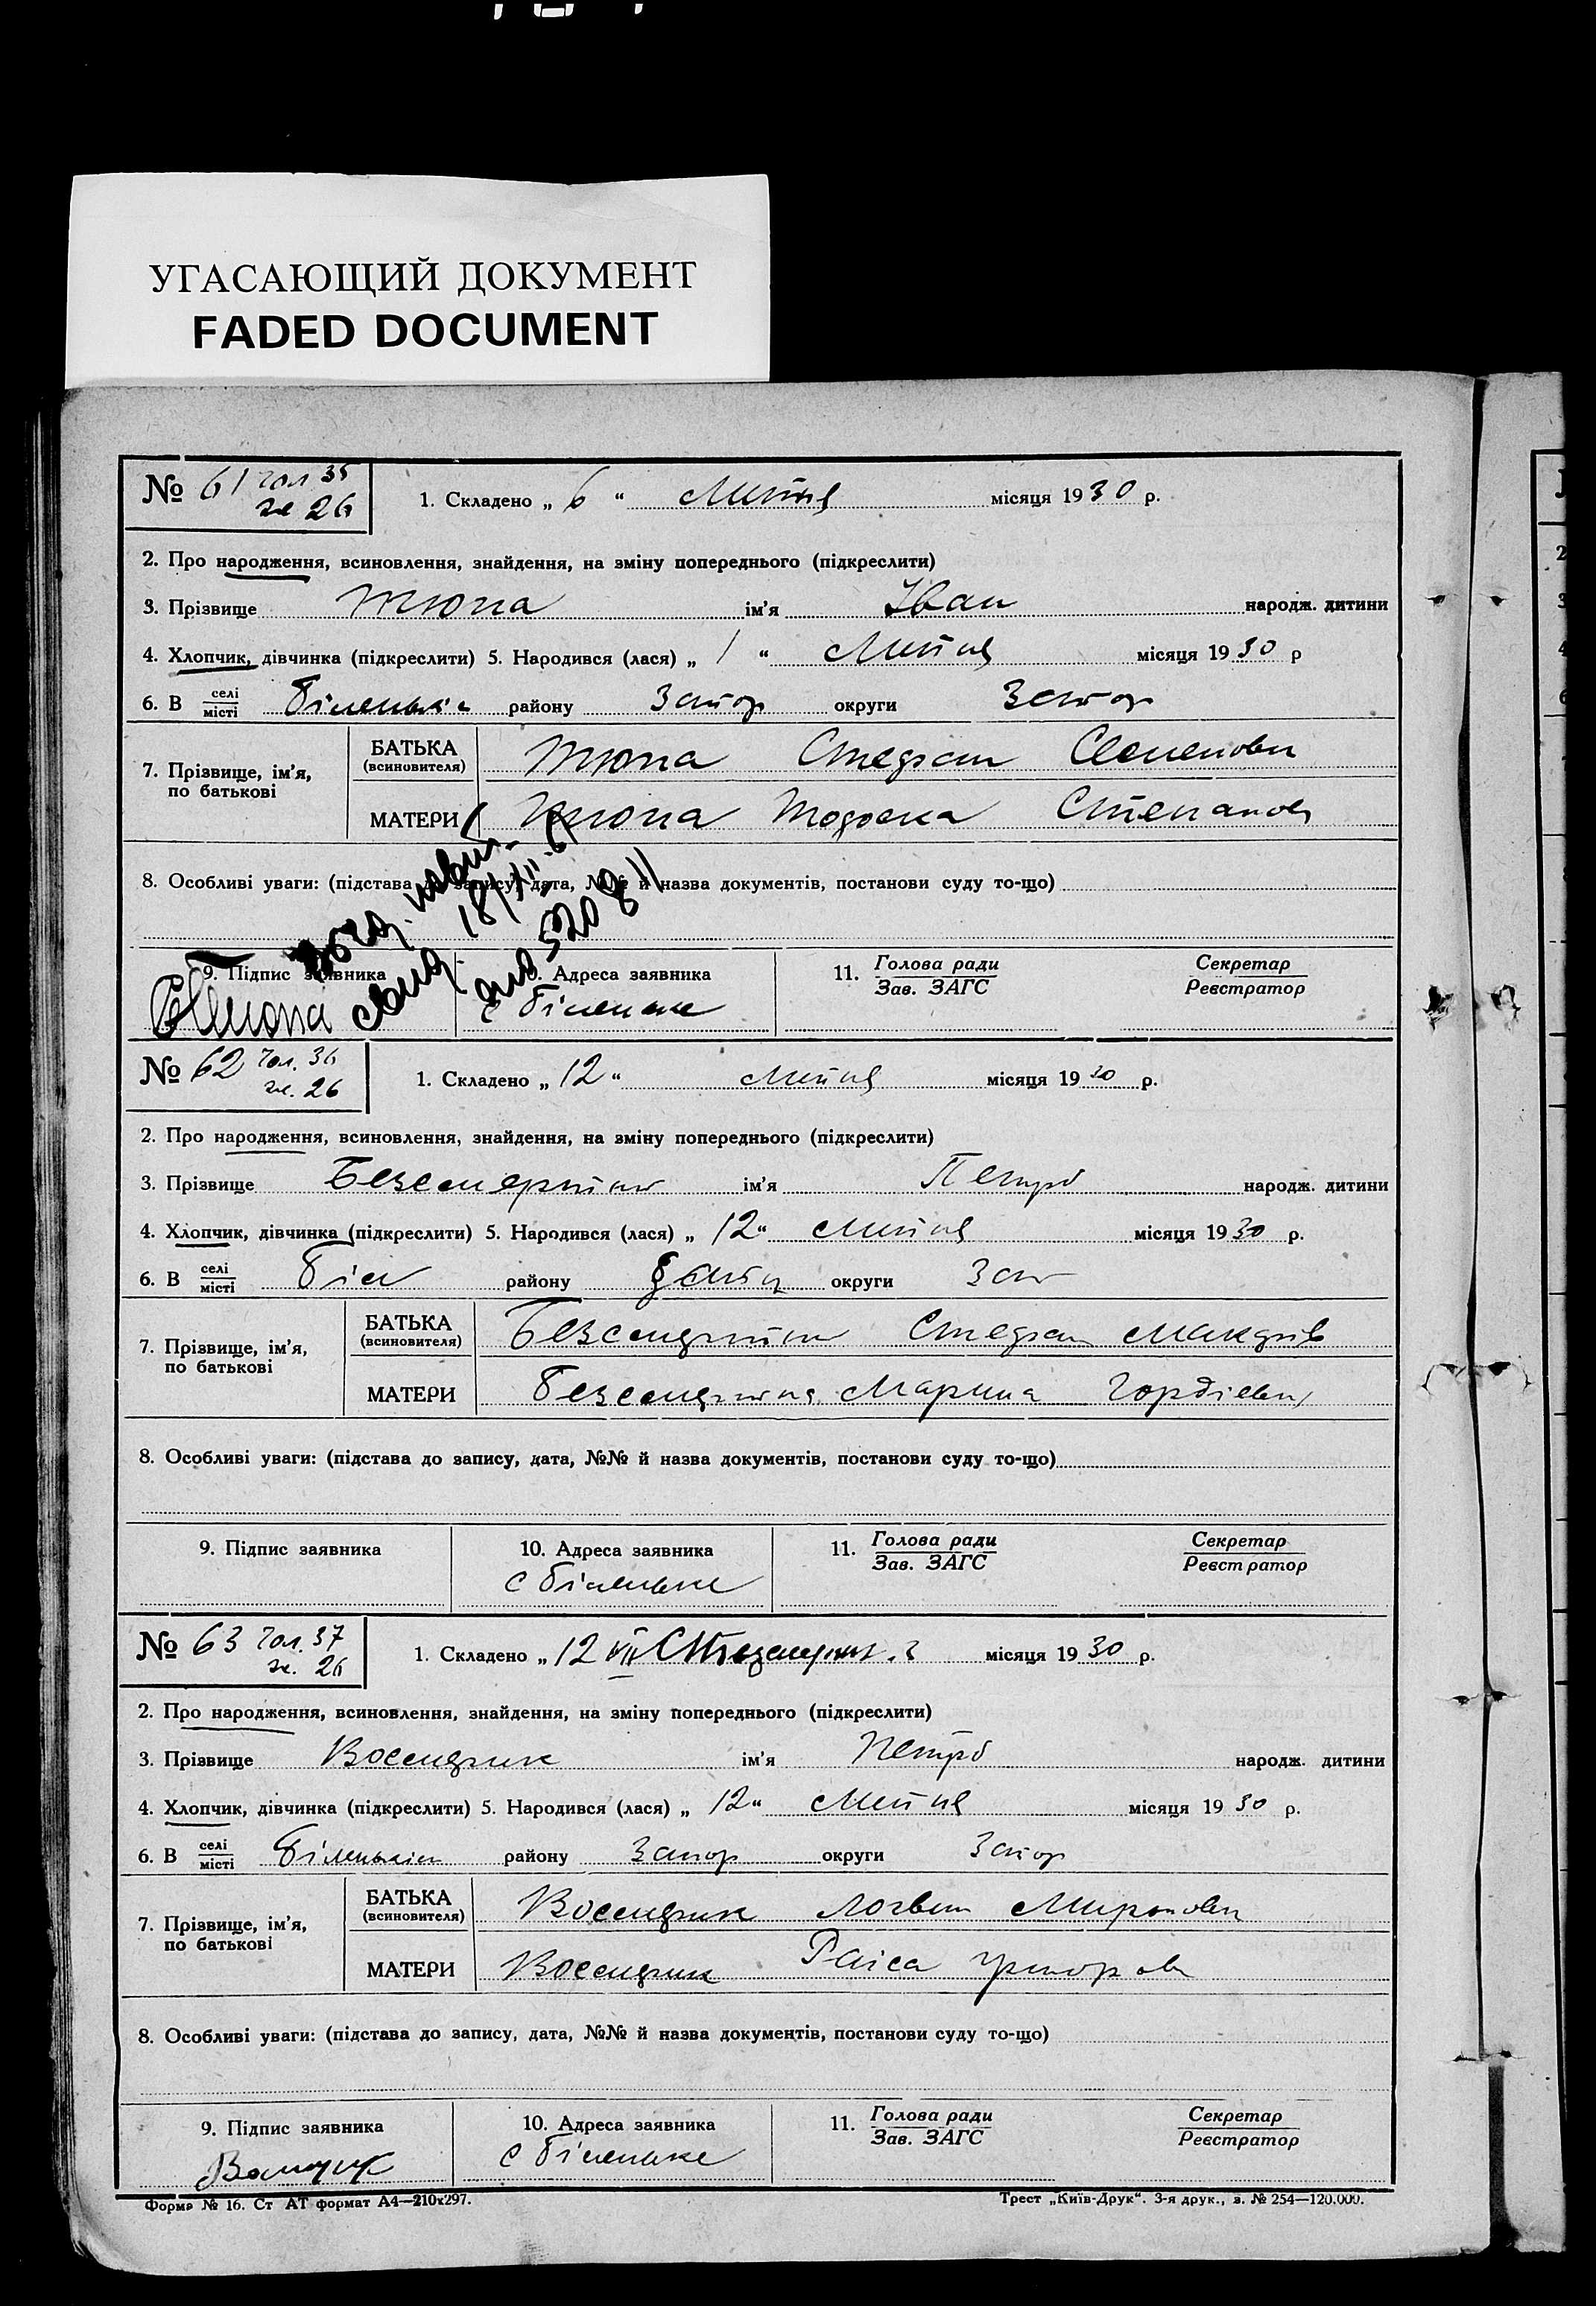 УГАСАЮЩИЙ ДОКУМЕНТ
FADED DOCUMENT
№ 61 чол 35
ж 26
1. Складено „ 6 “ Липня місяця 1930 р.
2. Про народження, всиновлення, знайдення, на зміну попереднього (підкреслити)
3. Прізвище Тюпа ім'я Іван народж. дитини
4. Хлопчик, дівчинка (підкреслити) 5. Народився (лася) „ 1 “ Липня місяця 1930 р
6. В селі місті Біленьке району Запор округи Запор
7. Прізвище, ім'я, по батькові
БАТЬКА (всиновителя) Тюпа Степан Семенови
МАТЕРИ Тюпа Тодоска Степанов
8. Особливі уваги: (підстава до запису, дата, №№ й назва документів, постанови суду то-що)
свид. 18/XII-61
520811
9. Підпис заявника
10. Адреса заявника
с Біленьке
11. Голова ради
Зав. ЗАГС
Секретар
Реєстратор
№ 62 чол. 36
ж. 26
1. Складено „ 12 “ липня місяця 1930 р.
2. Про народження, всиновлення, знайдення, на зміну попереднього (підкреслити)
3. Прізвище Безсмертни ім'я Петро народж. дитини
4. Хлопчик, дівчинка (підкреслити) 5. Народився (лася) „ 12 “ липня місяця 1930 р.
6. В селі місті Біл району округи Зап
7. Прізвище, ім'я, по батькові
БАТЬКА (всиновителя) Безсмертни Степан
МАТЕРИ Безсмертна Марина Гордіевн
8. Особливі уваги: (підстава до запису, дата, №№ й назва документів, постанови суду то-що)
9. Підпис заявника
10. Адреса заявника
с Біленьке
11. Голова ради
Зав. ЗАГС
Секретар
Реєстратор
№ 63 чол. 37
ж. 26
1. Складено „ 12 VII місяця 1930 р.
2. Про народження, всиновлення, знайдення, на зміну попереднього (підкреслити)
3. Прізвище ім'я Петро народж. дитини
4. Хлопчик, дівчинка (підкреслити) 5. Народився (лася) „ 12 “ липня місяця 1930 р.
6. В селі місті району Запор округи Запор
7. Прізвище, ім'я, по батькові
БАТЬКА (всиновителя) Логвин Миронови
МАТЕРИ Раіса
8. Особливі уваги: (підстава до запису, дата, №№ й назва документів, постанови суду то-що)
9. Підпис заявника
10. Адреса заявника
с Біленьке
11. Голова ради
Зав. ЗАГС
Секретар
Реєстратор
Форма № 16. Ст АТ формат А4—210х297.
Трест „Київ-Друк“. 3-я друк., з. № 254—120.000.